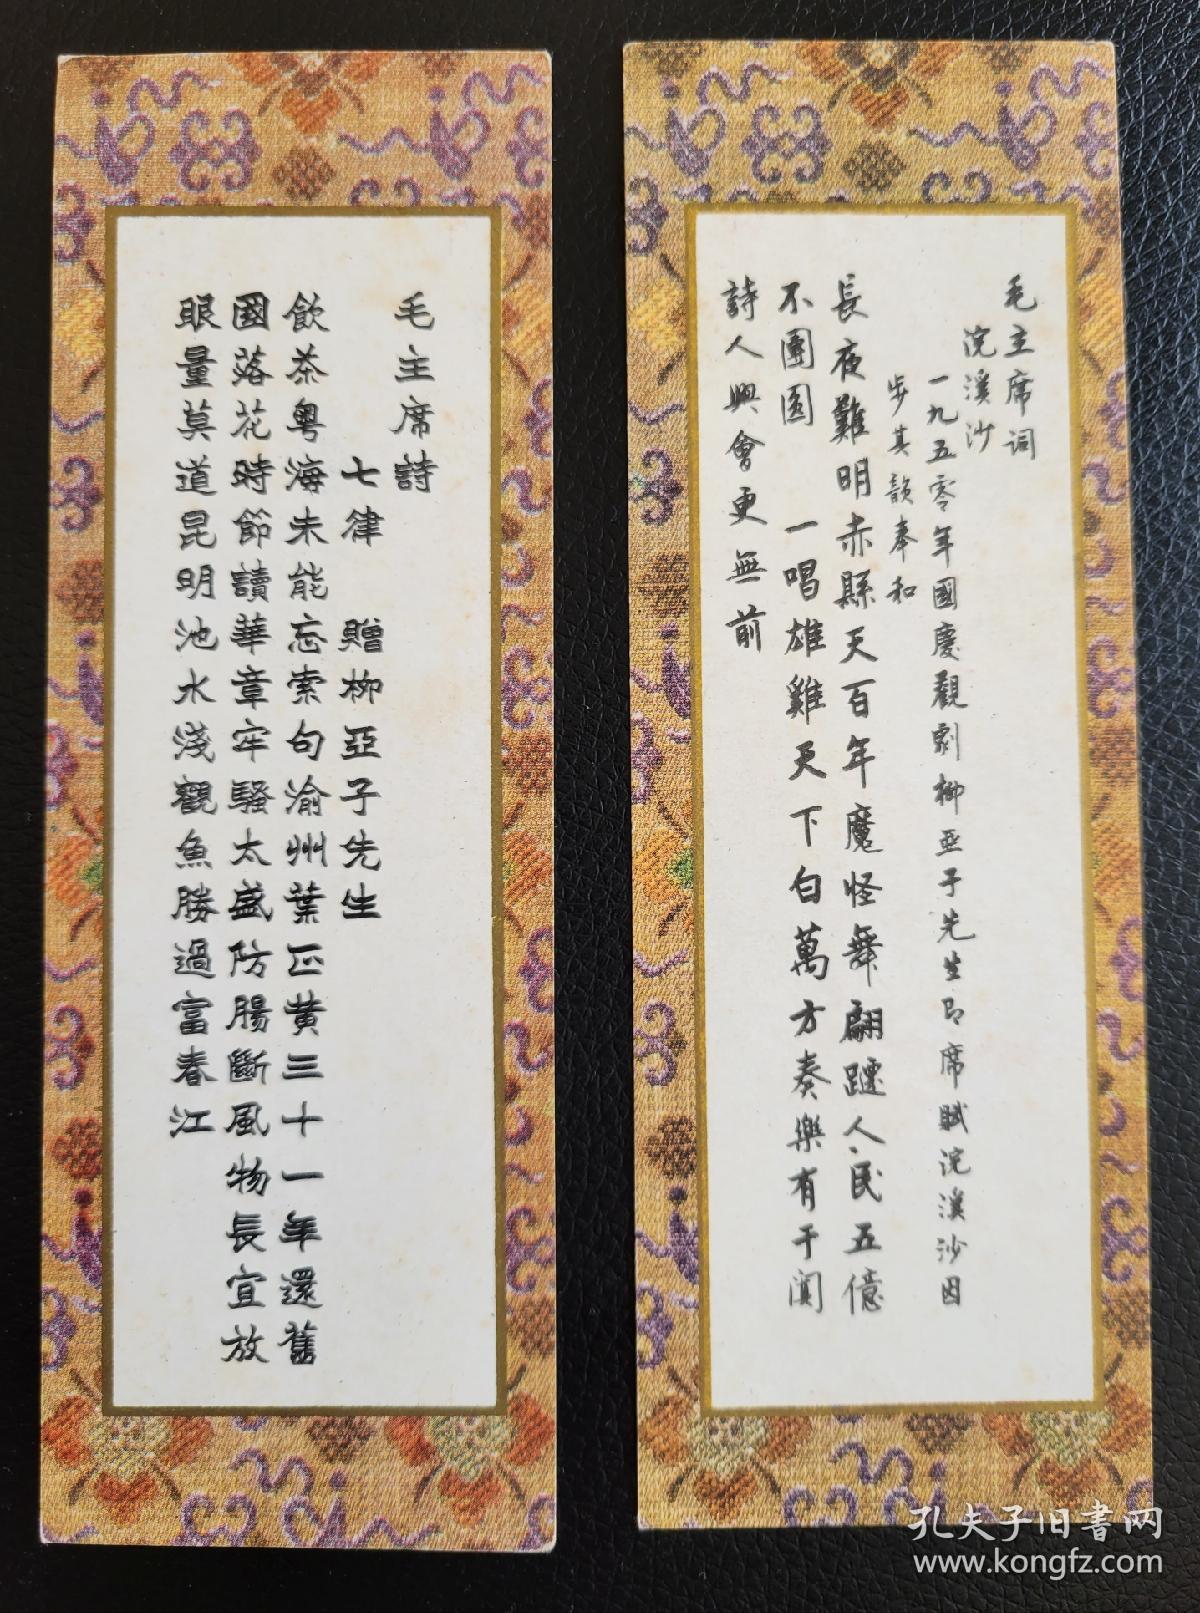 毛主席詩
七律　贈柳亞子先生
飲茶粤海未能忘索句渝州葉正黄三十一年還舊
國落花時節讀華章牢騷太盛防腸斷風物長宜放
眼量莫道昆明池水淺觀魚勝過富春江
毛主席词
浣溪沙
一九五零年國慶觀劇柳亞子先生即席賦浣溪沙因
步其韻奉和
長夜難明赤縣天百年魔怪舞翩躚人民五億
不團圓　一唱雄雞天下白萬方奏樂有于闐
詩人興會更無前
孔夫子旧書网
www.kongfz.com